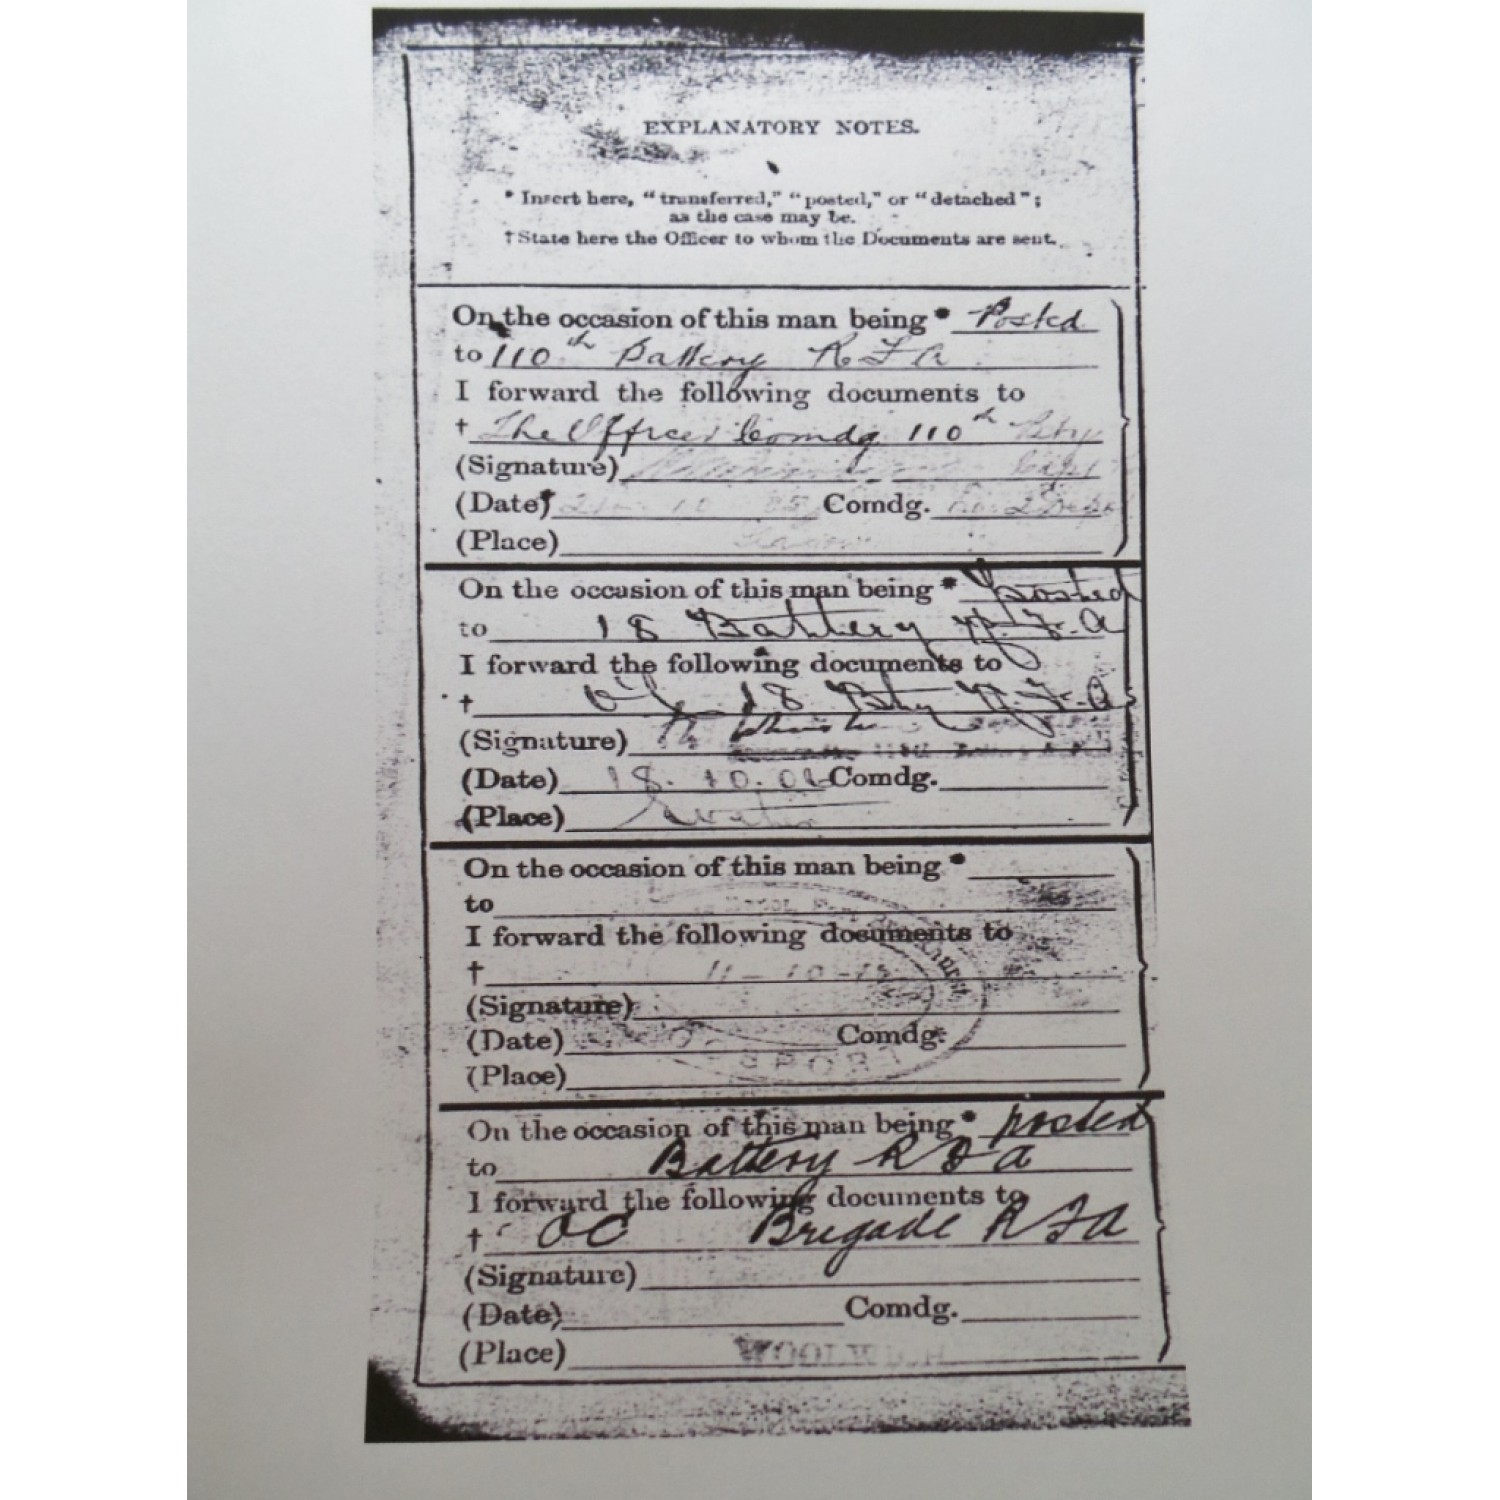 EXPLANATORY NOTES.
* Insert here, "transferred," "posted," or "detached";
as the case may be.
† State here the Officer to whom the Documents are sent.
On the occasion of this man being * Posted
to 110th Battery R F A
I forward the following documents to
† The Officer Comdg 110th Bty
(Signature) Capt
(Date) 10 05 Comdg. No. 2 Depot
(Place)
On the occasion of this man being * posted
to 18 Battery R. F. A
I forward the following documents to
† O/C 18 Bty R. F. A
(Signature)
(Date) 18. 10. 06 Comdg.
(Place)
On the occasion of this man being *
to
I forward the following documents to
† 11-10-
(Signature)
(Date) Comdg.
(Place)
On the occasion of this man being * posted
to Battery R F A
I forward the following documents to
† OC Brigade R F A
(Signature)
(Date) Comdg.
(Place) WOOLWICH